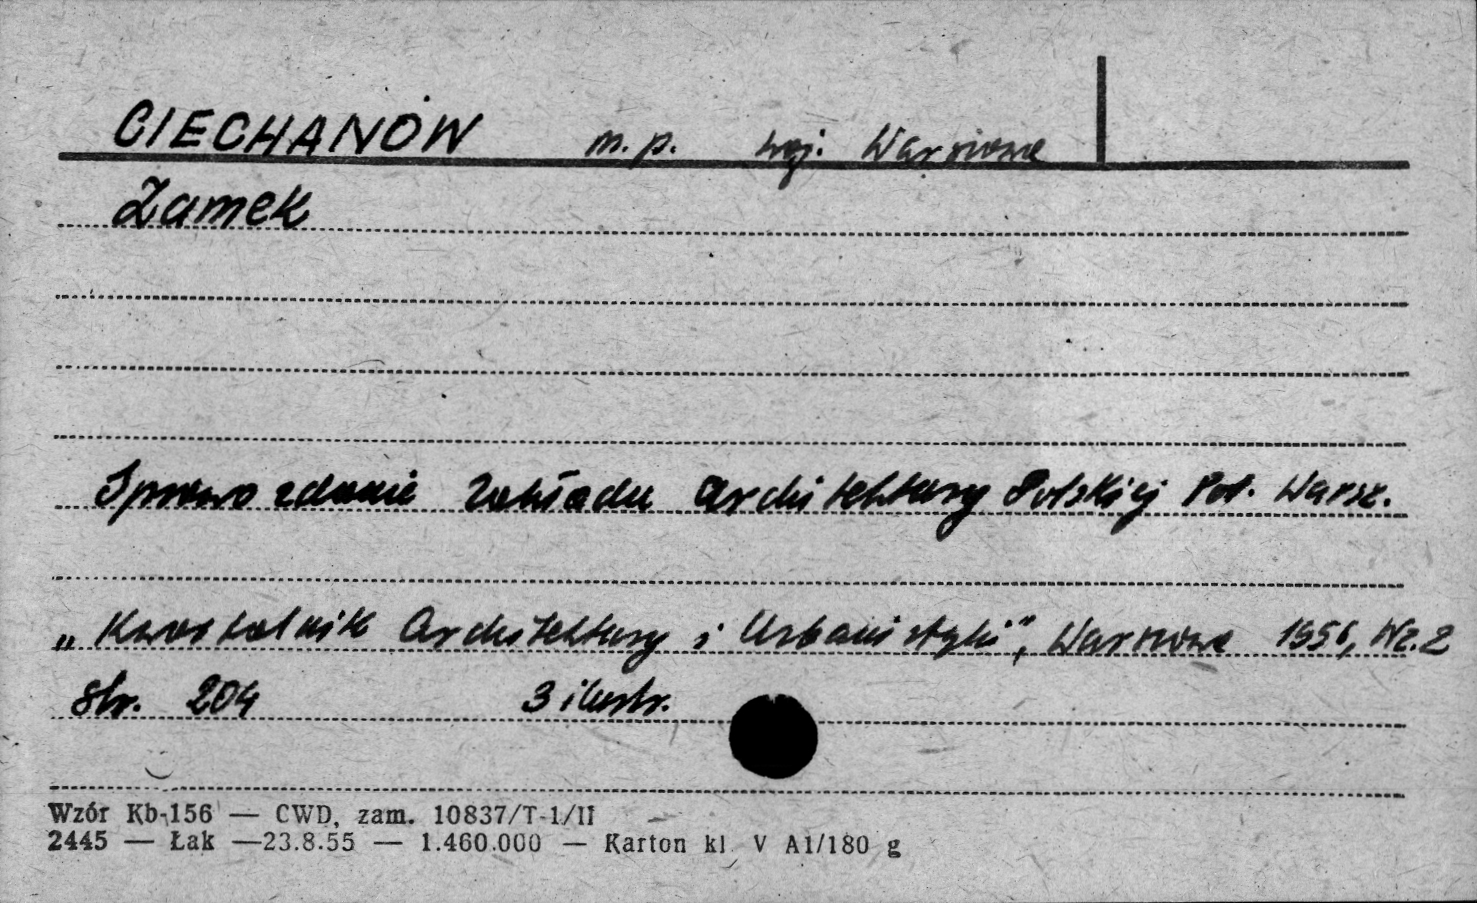 CIECHANÓW m.p. woj. Warszawa
Zamek
Sprawozdanie Zakładu Architektury Polskiej Pol. Warsz.
„Kwartalnik Architektury i Urbanistyki", Warszawa 1956, Nr. 2
str. 204 3 ilustr.
Wzór Kb-156 — CWD, zam. 10837/T-1/II
2445 — Łak —23.8.55 — 1.460.000 — Karton kl V A1/180 g